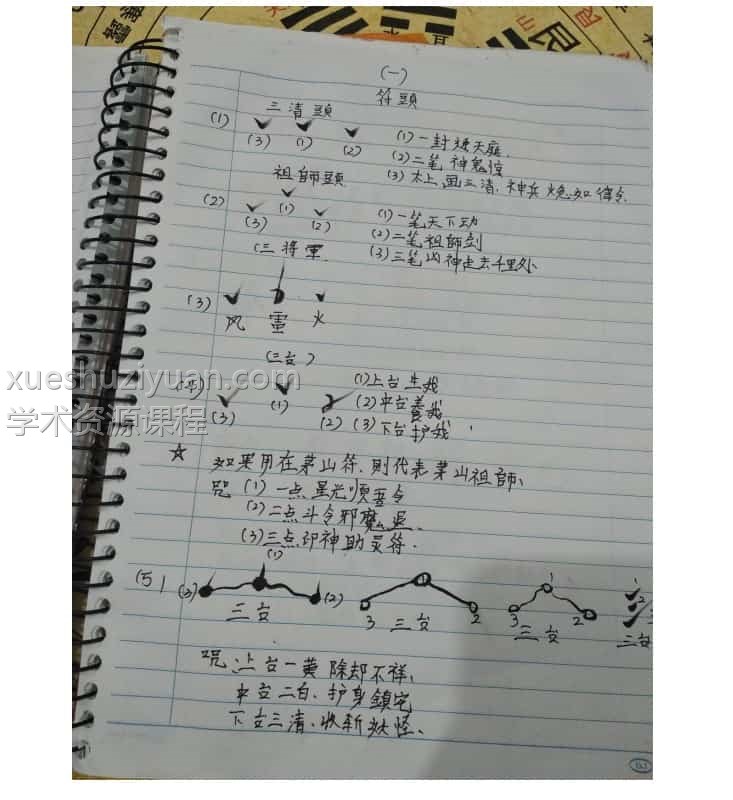 (一)
符頭
(1) 三清頭
(3) (1) (2)
(1) 一封燒天庭.
(2) 二笔神鬼惊
(3) 太上画三清,神兵火急如律令.
(2) 祖師頭
(3) (1) (2)
(1) 一笔天下动
(2) 二笔祖師剑
(3) 三笔凶神走去千里外
(三将軍
(3)
风 雷 火
(三台)
(4)
(3) (1) (2)
(1) 上台生我
(2) 中台养我
(3) 下台护我
xueshuziyuan.com
学术资源课程
☆ 如果用在茅山符,则代表茅山祖師、
咒 (1) 一点星光顺吾令
(2) 二点斗令邪魔退.
(3) 三点印神助灵符.
(5) (3) (1) (2)
三台
3 1 2
三台
3 1 2
三台
1 2 3
三台
咒:上台一黄 除却不祥,
中台二白.护身鎮宅
下台三清、收斩妖怪、